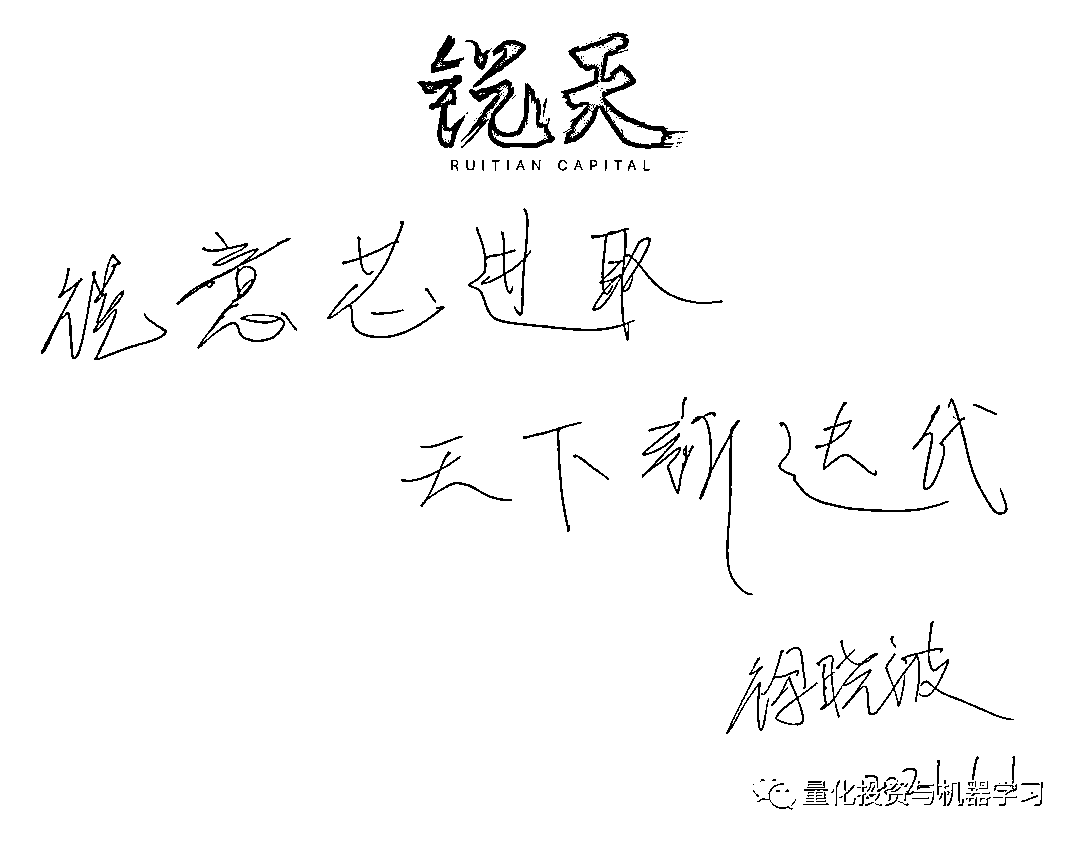 锐天
RUITIAN CAPITAL
锐意芯进取
天下新迭代
徐晓波
2021.1.1
量化投资与机器学习